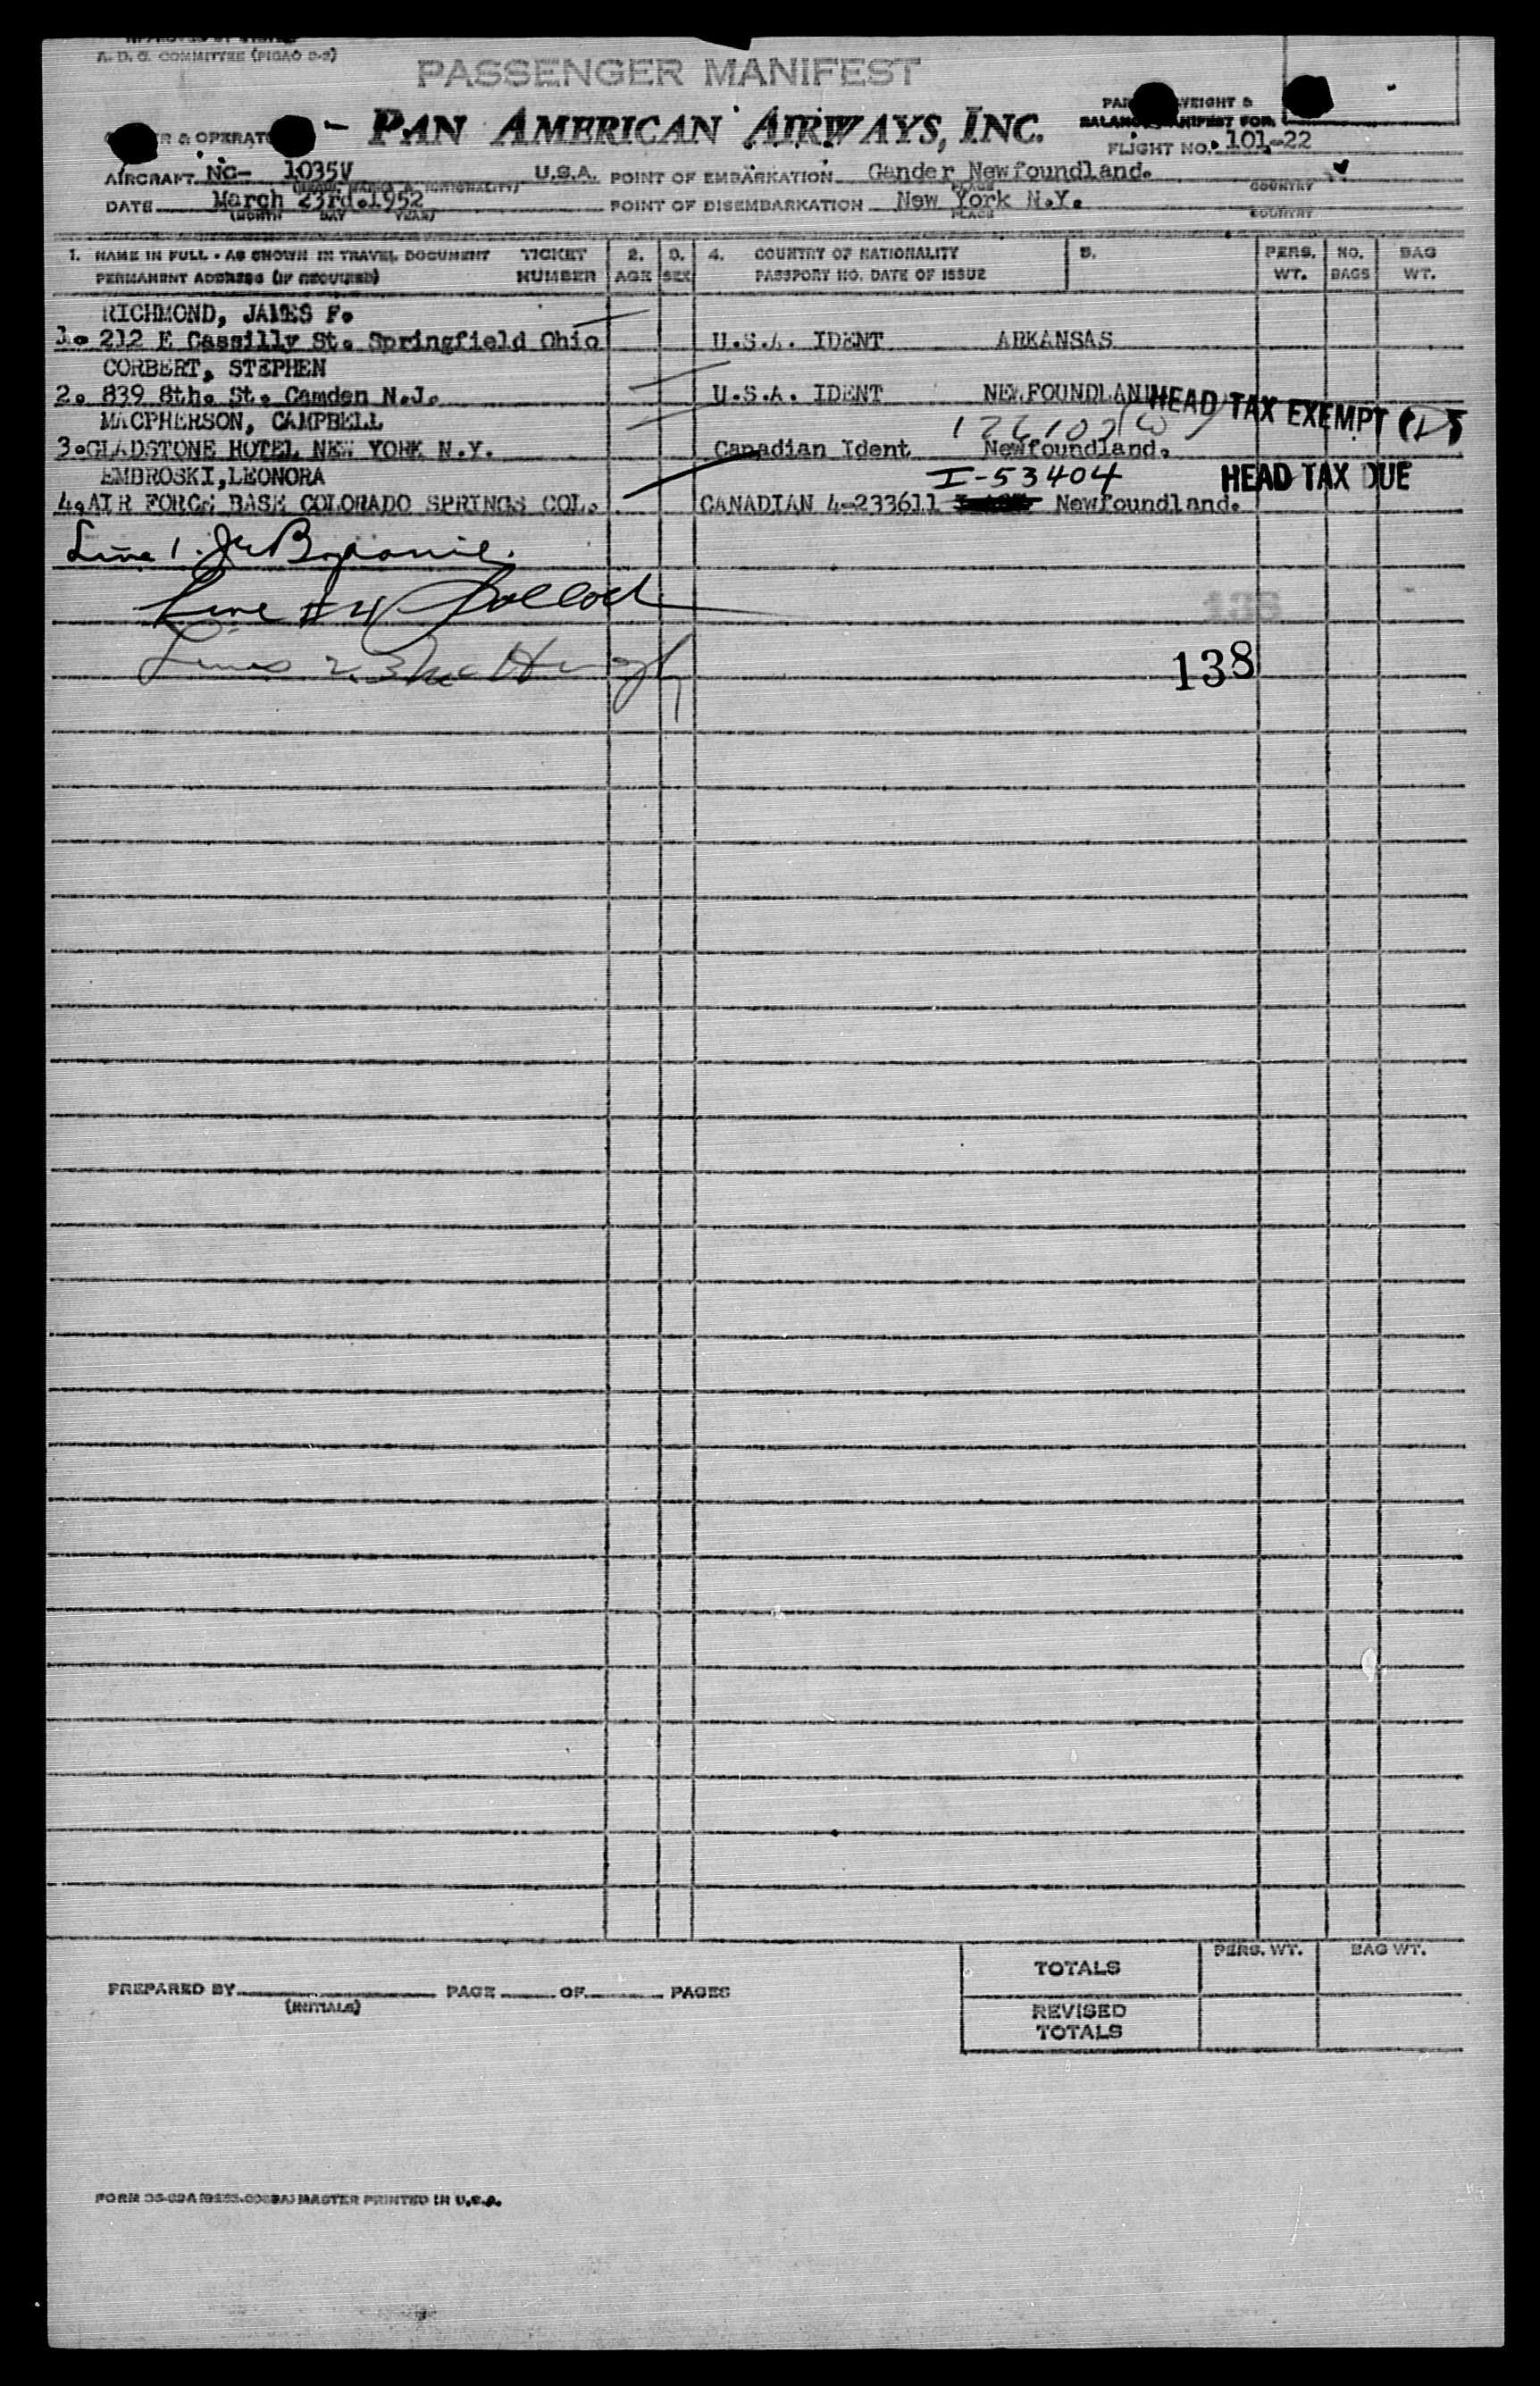 A. D. G. COMMITTEE (PICAO 2-3)
PASSENGER MANIFEST
& OPERATOR - PAN AMERICAN AIRWAYS, INC.
WEIGHT &
BALANCE MANIFEST FOR
FLIGHT NO. 101-22
AIRCRAFT NC- 1035V U.S.A. POINT OF EMBARKATION Gander Newfoundland.
PLACE COUNTRY
DATE March 23rd.1952 POINT OF DISEMBARKATION New York N.Y.
(MONTH DAY YEAR) PLACE COUNTRY
1. NAME IN FULL - AS SHOWN IN TRAVEL DOCUMENT TICKET 2. 3. 4. COUNTRY OF NATIONALITY 5. PERS. NO. BAG
PERMANENT ADDRESS (IF REQUIRED) NUMBER AGE SEX PASSPORT NO. DATE OF ISSUE WT. BAGS WT.
RICHMOND, JAMES F.
1. 212 E Cassilly St. Springfield Ohio U.S.A. IDENT ARKANSAS
CORBERT, STEPHEN
2. 839 8th. St. Camden N.J. U.S.A. IDENT NEWFOUNDLAND HEAD TAX EXEMPT (D)
MACPHERSON, CAMPBELL
3.GLADSTONE HOTEL NEW YORK N.Y. Canadian Ident Newfoundland.
EMBROSKI,LEONORA I-53404 HEAD TAX DUE
4.AIR FORCE BASE COLORADO SPRINGS COL. CANADIAN 4-233611 Newfoundland.
Line 1.
Line #4
138
Lines 2.3
138
TOTALS PERS. WT. BAG WT.
PREPARED BY PAGE OF PAGES
(INITIALS)
REVISED
TOTALS
MASTER PRINTED IN U.S.A.